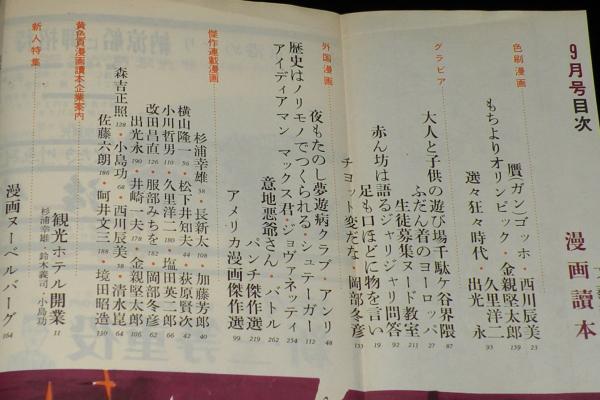 9月号目次
漫画讀本
色刷漫画
贋(ガン)ゴッホ・西川辰美 23
もちよりオリンピック・金親堅太郎 139
選々狂々時代・久里洋二
出光永 93
グラビア
大人と子供の遊び場千駄ケ谷界隈 87
ふだん着のヨーロッパ 27
生徒募集ヌード教室 211
赤ん坊は語るジャリジャリ問答 92
足も口ほどに物を言い 19
チョット変だな・岡部冬彦 133
外国漫画
夜もたのし夢遊病クラブ・アンリ 48
歴史はノリモノでつくられる・シュテーガー 112
アイディアマン マックス君・ジョヴァネッティ 254
意地悪爺さん・バトル 262
パンチ傑作選 219
アメリカ漫画傑作選 99
傑作連載漫画
杉浦幸雄 58・長新太 108・加藤芳郎 40
横山隆一 56・松下井知夫 44・荻原賢次 42
小川哲男 110・久里洋二 180・塩田英二郎 66
改田昌直 126・服部みちを 182・岡部冬彦 62
出光永 190・井崎一夫 178・金親堅太郎 106
森吉正照 128・小島功 68・西川辰美 38・清水崑 64
佐藤六朗 186・阿井文三 188・境田昭造 130
黄色頁漫画讀本企業案内
観光ホテル開業 11
杉浦幸雄・鈴木義司・小島功
新人特集
漫画ヌーベルバーグ 164